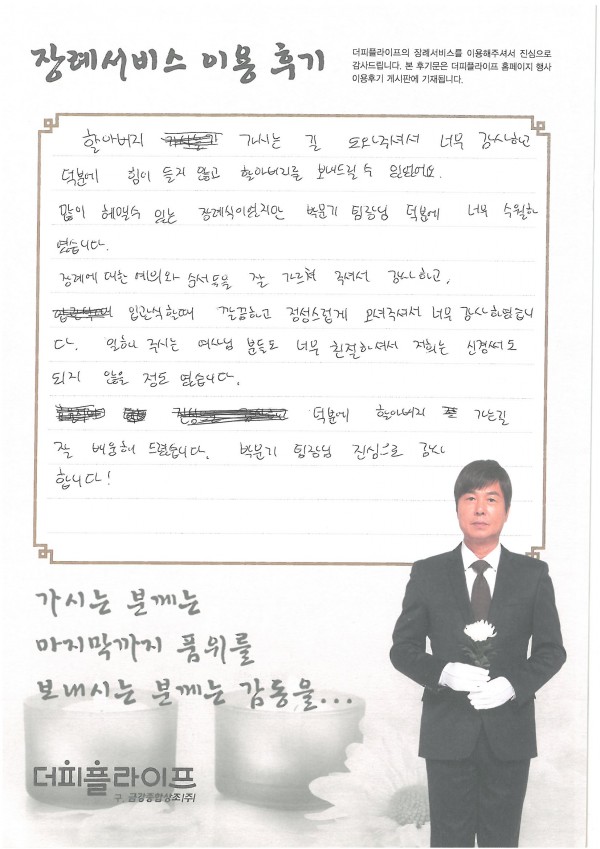 장례서비스 이용 후기
더피플라이프의 장례서비스를 이용해주셔서 진심으로
감사드립니다. 본 후기문은 더피플라이프 홈페이지 행사
이용후기 게시판에 기재됩니다.
할아버지 가시는 길 도와주셔서 너무 감사하고
덕분에 힘이 들지 않고 할아버지를 보내드릴 수 있었어요.
많이 헤맬수 있는 장례식이였지만 박문기 팀장님 덕분에 너무 수월하
였습니다.
장례에 대한 예의와 순서 등을 잘 가르쳐 주셔서 감사하고,
입관식할때 깔끔하고 정성스럽게 모셔주셔서 너무 감사하였습니
다. 일해 주시는 여사님 분들도 너무 친절하셔서 저희는 신경써도
되지 않을 정도 였습니다.
덕분에 할아버지 가는길
잘 배웅해 드렸습니다. 박문기 팀장님 진심으로 감사
합니다!
가시는 분께는
마지막까지 품위를
보내시는 분께는 감동을...
더피플라이프
구. 금강종합상조(주)